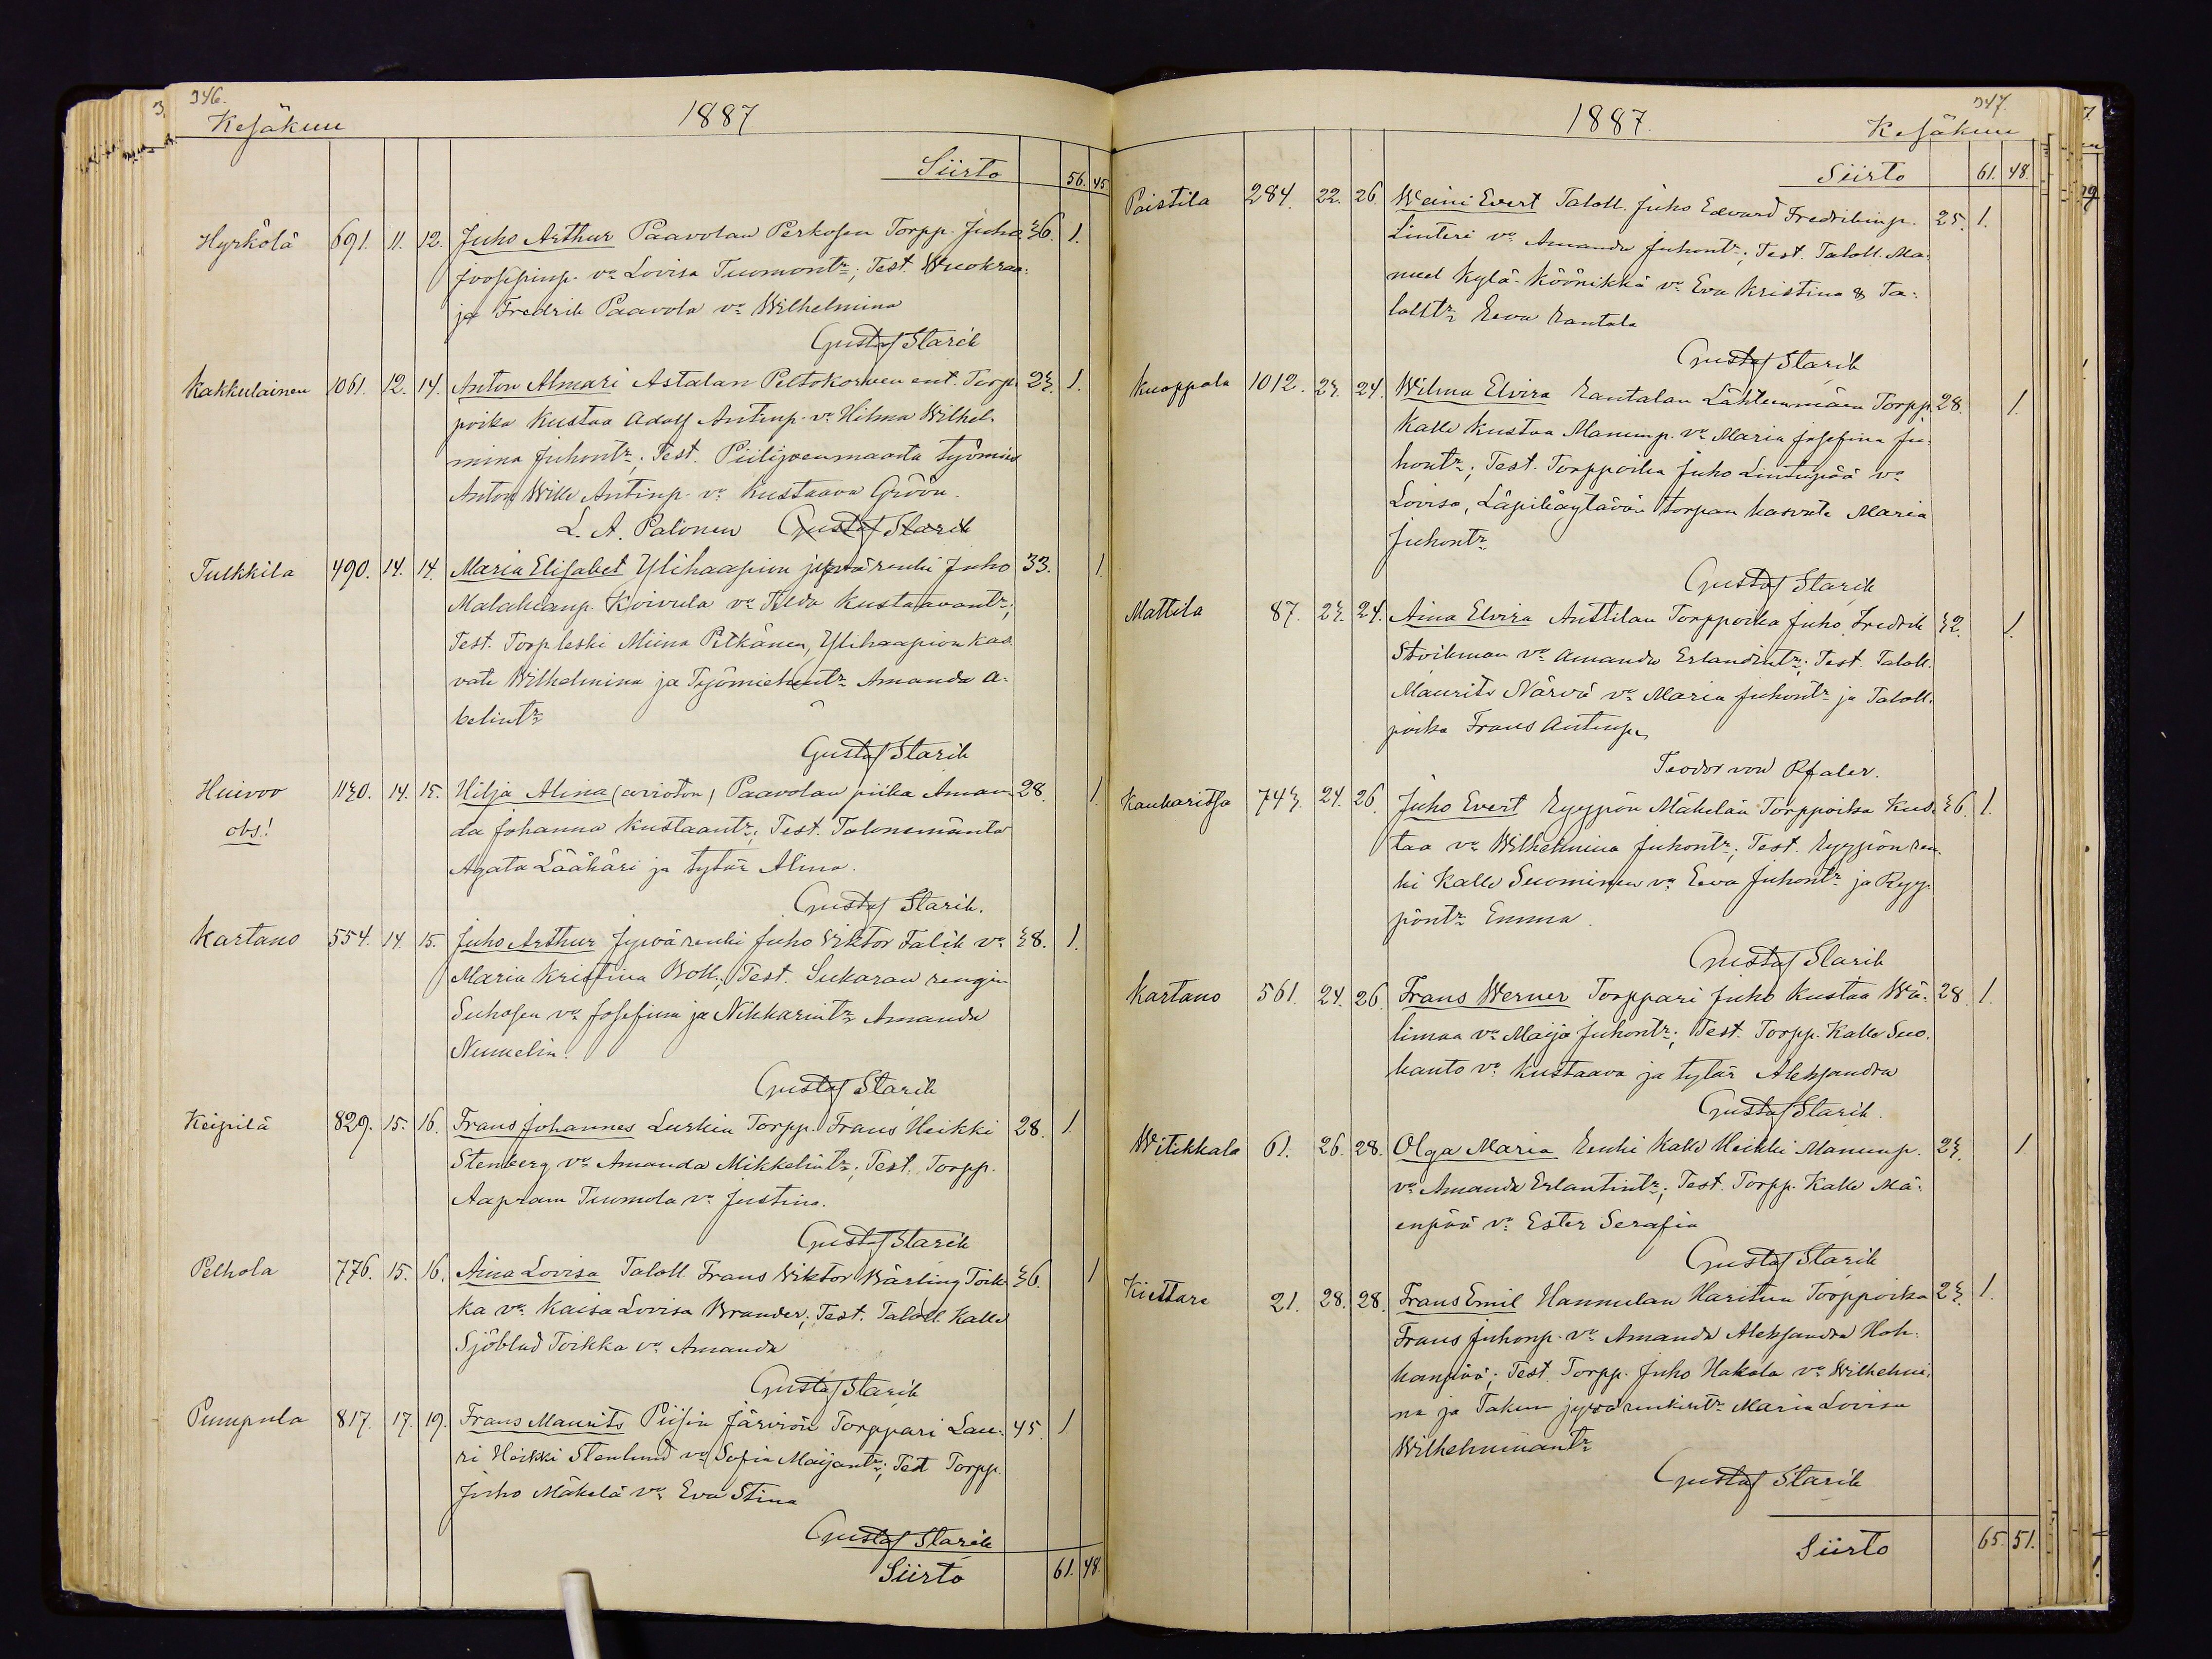 346.
Kesäkuu 1887
Siirto 56. 45
Hyrkölä 691. 11. 12. Juho Arthur Paavolan Perkosen Torpp. Juho 36. 1.
Joosefinp. vo Lovisa Tuomontr; Test. Wuokraa-
ja Fredrik Paavola vo Wilhelmina
Gustaf Starck
Kakkulainen 1061. 12. 14. Anton Almari Astalan Peltokorven ent. Torp. 23. 1.
poika Kustaa Adolf Antinp. vo Hilma Wilhel-
mina Juhontr; Test. Piilijoenmaasta työmies
Anton Wille Antinp. vo Kustaava Gröön.
L. A. Palonen Gustaf Starck
Tulkkila 490. 14. 14. Maria Elisabet Ylihaapion jyvärenki Juho 33. 1
Malakianp. Koivula vo Tilda Kustaavantr;
Test. Torp leski Miina Pitkänen, Ylihaapion kas-
vate Wilhelmina ja Työmiehentr Amanda A-
belintr
Gustaf Starck
Huivoo 1130. 14. 15. Hilja Alina (avioton) Paavolan piika Aman- 28. 1.
obs! da Johanna Kustaantr; Test. Talonemäntä
Agata Lääkäri ja tytär Alma.
Gustaf Starck.
Kartano 554. 14. 15. Juho Arthur Jyvärenki Juho Viktor Falck vo 38. 1.
Maria Kristina Boll.; Test. Sukaran rengin
Suhosen vo Josefina ja Nikkarintr Amanda
Nummelin.
Gustaf Starck
Keipilä 829. 15. 16. Frans Johannes Luskin Torpp. Frans Heikki 28. 1
Stenberg vo Amanda Mikkelintr; Test. Torpp.
Aapram Tuomola vo Justina.
Gustaf Starck
Pelhola 776. 15. 16. Aina Lovisa Taloll. Frans Viktor Bärling Toik- 36. 1
ka vo Kaisa Lovisa Brander; Test. Taloll. Kalle
Sjöblad Toikka vo Amanda
Gustaf Starck
Pumpula 817. 17. 19. Frans Maurits Piisin Järviön Torppari Lau- 45. 1
ri Heikki Stenlund vo Sofia Maijantr; Test Torpp.
Juho Mäkelä vo Eva Stina
Gustaf Starck
Siirto 61. 48.
347.
1887. Kesäkuu
Siirto 61. 48.
Poistila 284. 22. 26. Weini Evert Taloll. Juho Edvard Fredrikinp. 25. 1.
Linteri vo Amanda Juhontr; Test. Taloll. Ma-
nuel Kylä-Köönikkä vo Eva Kristina & Ta-
lolltr Eeva Rantala
Gustaf Starck
Kuoppala 1012. 23. 24. Wilma Elvira Rantalan Lähteenmäen Torpp. 28. 1.
Kalle Kustaa Manunp. vo Maria Josefina Ju-
hontr; Test. Torppoika Juho Lintupää vo
Lovisa, Läpikäytävän torpan kasvate Maria
Juhontr
Gustaf Starck
Mattila 87. 23. 24. Aina Elvira Anttilan Torppoika Juho Fredrik 32. 1.
Stoikman vo Amanda Erlandintr; Test. Taloll.
Maurits Närvä vo Maria Juhontr ja Taloll.
poika Frans Antinp.
Teodor von Pfaler.
Kaukaritsa 743. 24. 26. Juho Evert Ryypön Mäkelän Torppoika Kus- 36. 1.
taa vo Wilhelmina Juhontr; Test. Ryypön ren-
ki Kalle Suominen vo Eeva Juhontr ja Ryy-
pöntr Emma.
Gustaf Starck
Kartano 561. 24. 26. Frans Werner Torppari Juho Kustaa Wä- 28. 1.
limaa vo Maija Juhontr; Test. Torpp. Kalle Suo-
kanto vo Kustaava ja tytär Aleksandra
Gustaf Starck.
Witikkala 61. 26. 28. Olga Maria Renki Kalle Heikki Manunp. 23. 1
vo Amanda Erlantintr; Test. Torpp. Kalle Mä-
enpää vo Ester Serafia
Gustaf Starck
Kiettare 21. 28. 28. Frans Emil Hannulan Haritun Torppoika 23. 1.
Frans Juhonp. vo Amanda Aleksandra Hoh-
kanpää; Test. Torpp. Juho Hakala vo Wilhelmi-
na ja Takun jyvärenkintr Maria Lovisa
Wilhelmiinantr
Gustaf Starck
Siirto 65. 51.